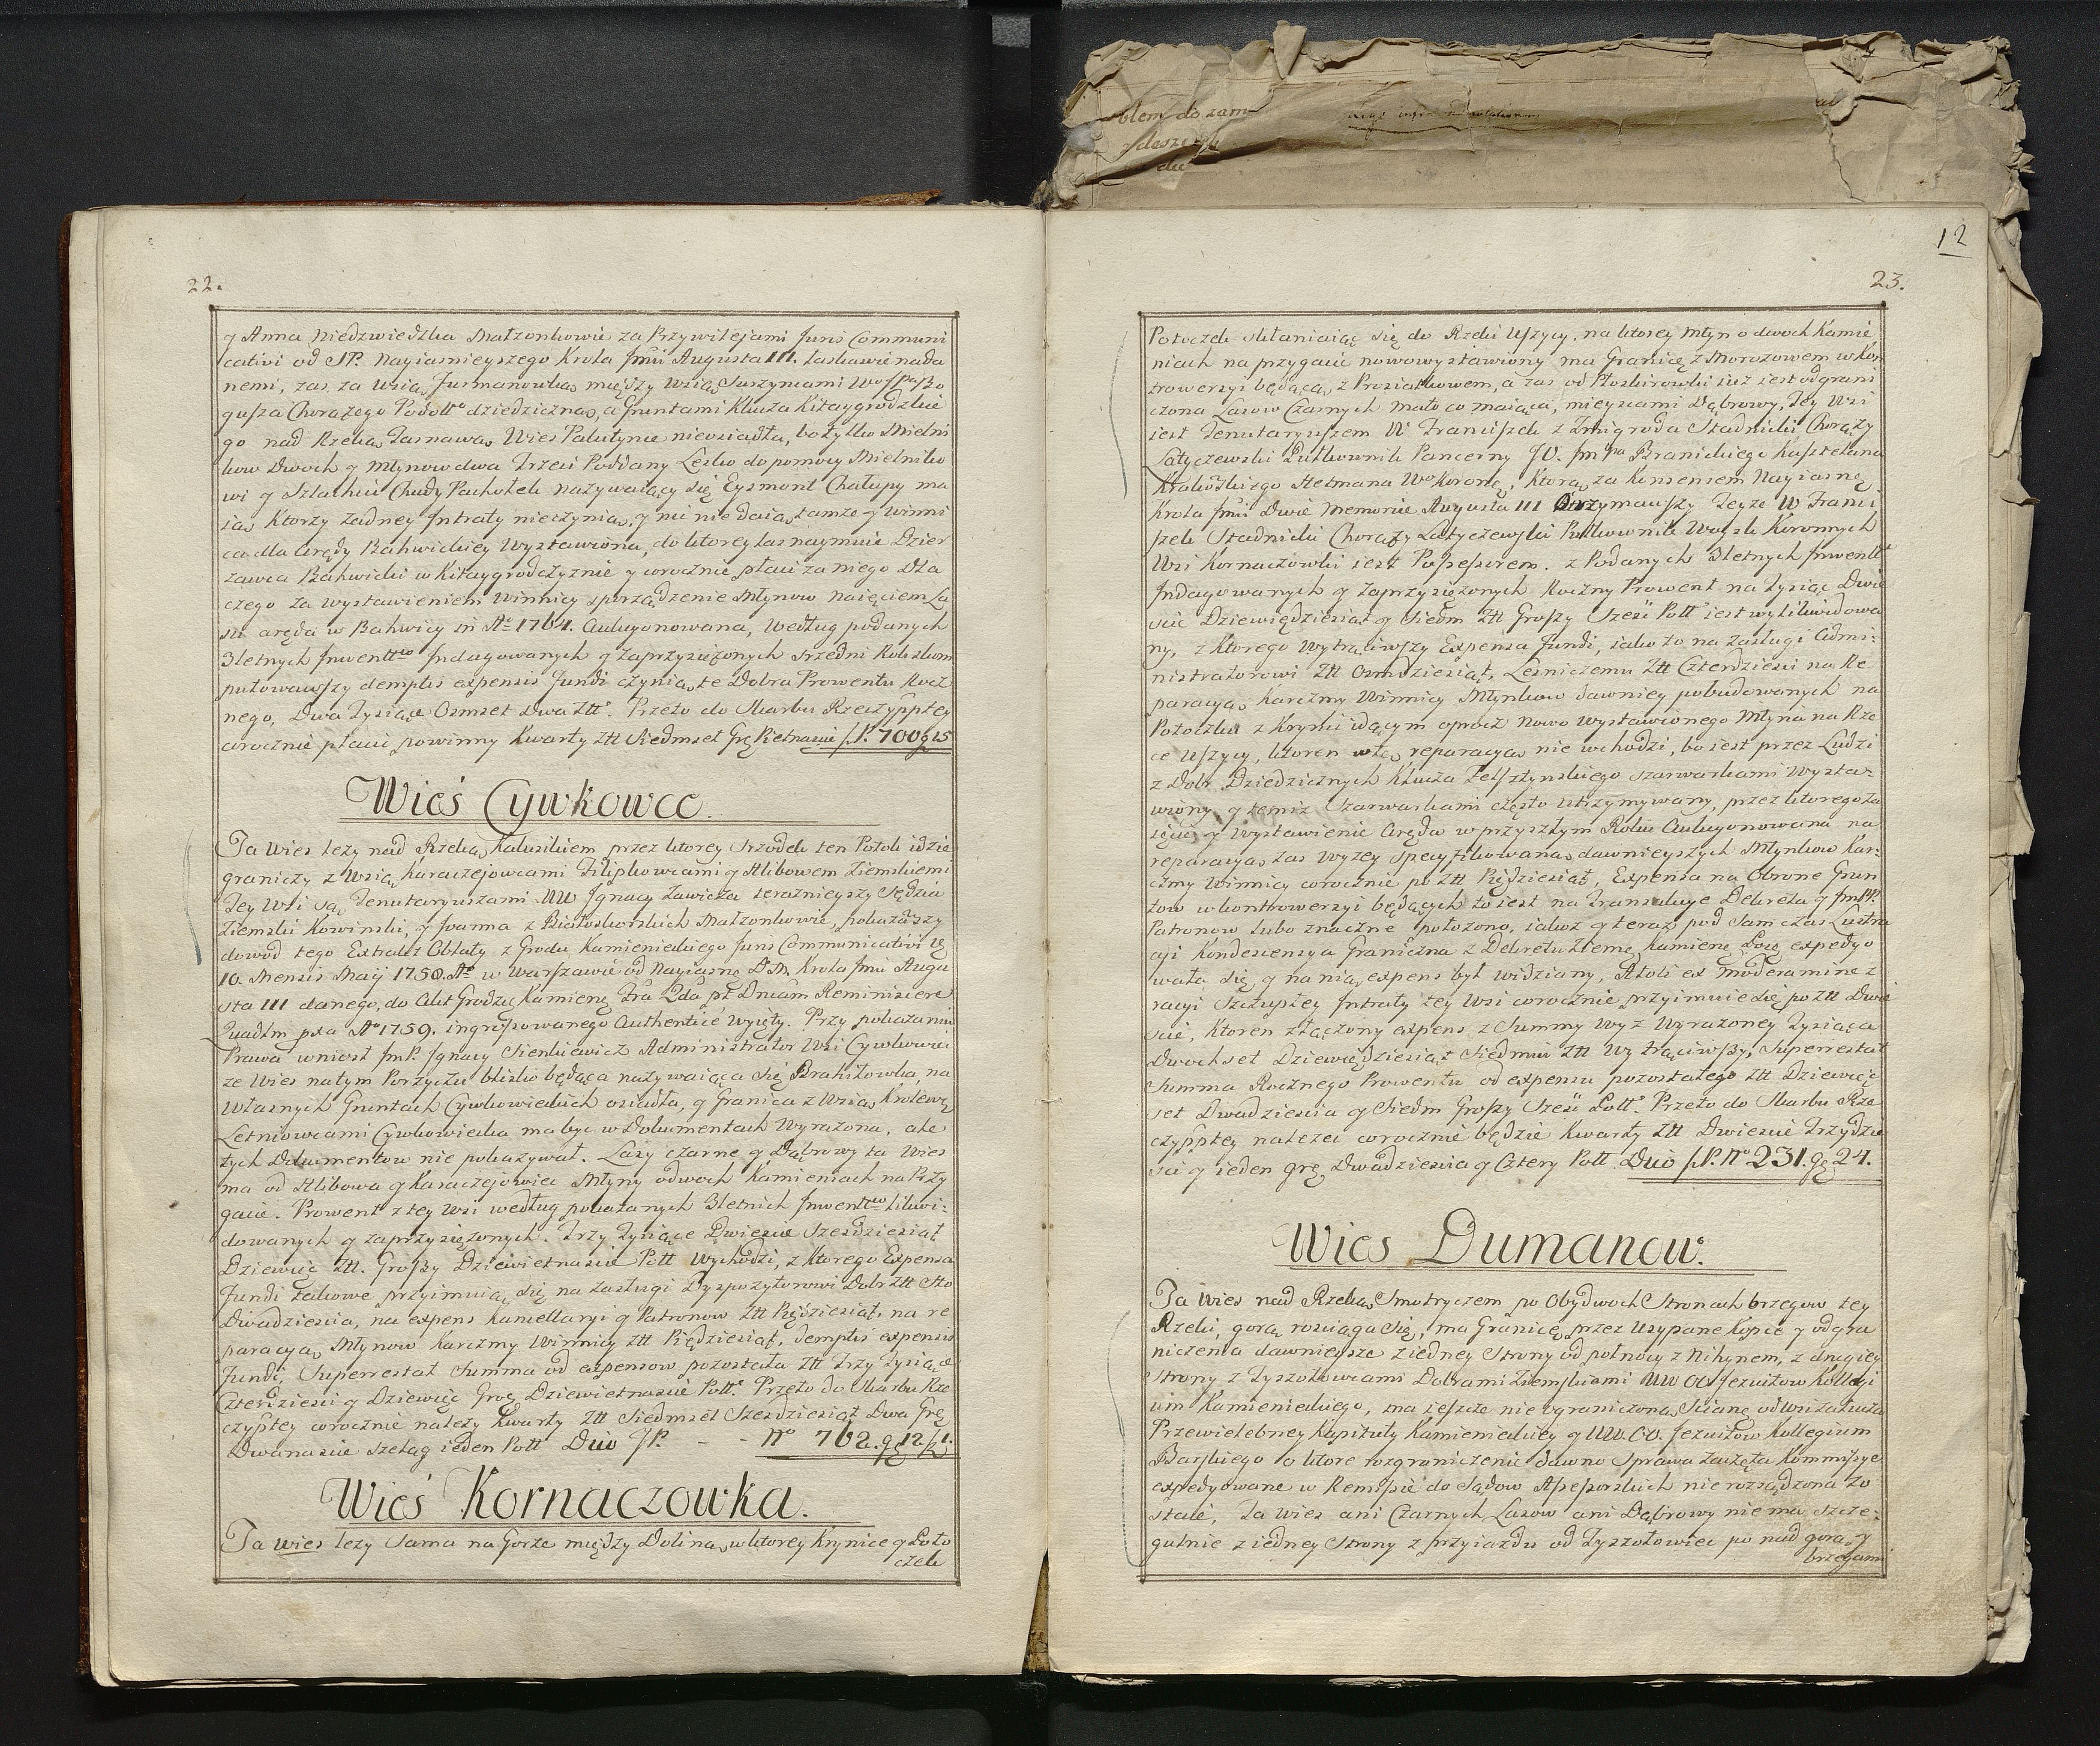 22.
y Anna Niedzwiedzka Małzonkowie za Przywilejami Juris Communi
cativi od SP. Nayiasnieyszego Krola Jmći Augusta III. łaskawie nada
nemi, zas za Wsią Furmanowką między Wsią Suszyncami
Chorążego dziedziczną, a Gruntami Klucza Kitaygrodzkie
go nad Rzeką Wies Palutynie nieosiadła, bo tylko Mielni
kow Dwoch y Młynow dwa Trzeci Poddany Lesko do pomocy Mielniko
wi y Szlachcic Chudy Pachołek nazywaiący się Eysmont Chałupy ma
ią, Ktorzy żadney Intraty nieczynią, y nic nie daią, tamze y Winni
ca dla Arędy Bahwickiey Wystawiona, do ktorey las naymuie Dzier
zawca Bahwicki w Kitaygrodczyznie y corocznie płaci za niego Dla
czego za wystawieniem Winnicy sporządzenie Młynow naięciem La
su aręda w Bahwicy in Aº 1764. Aukcyonowana, Według podanych
3letnych Inwentt Indagowanych y zaprzysiężonych srzedni Rok skom
putowawszy demptis expensis Fundi czynią te Dobra Prowentu Rocz
nego, Dwa Tysiące Osmset Dwa Złł. Przeto do Skarbu Rzeczyppltey
corocznie płacić powinny Kwarty Złł Siedmset Grę Pietnascie f.P. 700 g 15
Wieś Cywkowce.
Ta Wies lezy nad Rzeką Kalusikiem przez ktorey Srzodek ten Potok idzie
graniczy z Wsią Karaczejowcami Filipkowcami y Hlibowem Ziemskiemi
Tey Wsi są Tenutaryuszami WW Ignacy Zawisza teraznieyszy Sędzia
Ziemski Kowinski, y Joanna z Białoskorskich Małzonkowie, pokazaszy
dowod tego Extrakt Oblaty z Grodu Kamienieckiego Juris Communicativi
10. Mensis Maij 1758. Aº w Warszawie od Nayiasne D.N. Krola Jmći Augu
sta III danego, do Akt Grodzę Kamienę Fra 2da pt Dncam Reminiscere
Quadlm pxa Aº 1759. ingrossowanego Authentice wyięty. Przy pokazaniu
Prawa wniosł JmP. Ignacy Sienkiewicz Administrator Wsi Cywkowiec
ze Wies na tym Porzyczu blisko będąca nazywaiąca się Brahiłowka, na
Własnych Gruntach Cywkowieckich osiadła, y Granica z Wsią Krolewę
Letniowcami Cywkowiecka ma byc w Dokumentach Wyrazona, ale
tych Dokumentow nie pokazywał. Lasy czarne y Dąbrowy ta Wies
ma od Hlibowa y Karaczejowiec Młyny o dwoch Kamieniach na Przy
gacie. Prowent z tey Wsi według pokazanych 3letnich Inwentt likwi-
dowanych y zaprzysiężonych. Trzy Tysiące Dwiescie Szesdziesiąt
Dziewięc Złł. Groszy Dziewietnascie Poll Wychodzi, z Ktorego Expensa
Fundi takowe przyimuią się na zasługi Dyspozytorowi Dobr Złł Sto
Dwadziescia, na expens Kancellaryi y Patronow Złł Pięcdziesiąt, na re
paracyą Młynow Karczmy Winnicy Złł Pięcdziesiąt, demptis expensis
Fundi, Superrestat Summa od expensow pozostała Złł Trzy Tysiące
Czterdziesci y Dziewięc Groę Dziewietnascie Poll. Przeto do Skarbu Rze
czypltey corocznie nalezy Kwarty Złł Siedmset Szesdziesiąt Dwa Grę
Dwanascie szeląg ieden Poll Dico f.P. - - Nº 762. g 12 f 1.
Wieś Kornaczowka.
Ta wies lezy sama na Gorze między Doliną, w ktorey Krynice y Poto
czek
12
23.
Potoczek skłaniaiąc się do Rzeki Uszycy, na ktorey Młyn o dwoch Kamie
niach na przygacie nowowystawiony ma Granicę z Morozowem w Kon
trowersyi będącą, z Prosiatkowem, a zas od Ploskirowki iuz iest odgrani
czona Lasow Czarnych mało co maiąca, mieyscami Dąbrowy, Tey Wsi
iest Tenutaryuszem W Franciszek z Zmigroda Stadnicki Chorąży
Latyczewski Pułkownik Pancerny JO. Jm Pa Branickiego Kasztelana
Krakowskiego Hetmana Wo Koronę, Ktorą za Konsensem Nayiasnę
Krola Jmći Divæ Memoriæ Augusta III Otrzymawszy Tegze W Franci
szek Stadnicki Chorąży Latyczewski Pułkownik Woysk Koronnych
Wsi Kornaczowki iest Possessorem. z Podanych 3letnych Inwentt
Indagowanych y Zaprzysiężonych Roczny Prowent na Tysiąc Dwie
scie Dziewięcdziesiąt y Siedm Złł Groszy Szesc Poll iest wylikwidowa
ny, z Ktorego Wytrąciwszy Expensa Fundi, iako to na zasługi Admi-
nistratorowi Złł Osmdziesiąt, Lesniczemu Złł Czterdziesci na Re
paracyą Karczmy Winnicy Młynkow dawniey pobudowanych na
Potoczku z Krynic idącym oprocz Nowo Wystawionego Młyna na Rze
ce Uszycy, ktoren w tę reparacyą nie wchodzi, bo iest przez Ludzi
z Dobr Dziedzicznych Klucza Felsztynskiego szarwarkami Wysta-
wiony y temiz Szarwarkami często utrzymywany, przez ktorego za
ięcie y Wystawienie Aręda w przyszłym Roku Aukcyonowana na
reparacyą zas Wyzey Specyfikowaną dawnieyszych Młynkow Kar-
czmy Winnicy corocznie po Złł Pięcdziesiąt, Expensa na Obronę Grun
tow w kontrowersyi będących to iest na Transakcye Dekreta y JmPP.
Patronow lubo znaczne połozono, iakoz y teraz pod sam czas Lustra
cyi Kondescensya Graniczna z Dekretu Ziemę Kamienę Dosę expedyo
wała się y na nią expens był widziany, Atoli ex moderamine z
racyi Szczupłey Intraty tey Wsi corocznie przyimuie się po Złł Dwie
scie, Ktoren złączony expens z Summy Wyz Wyrazoney Tysiąca
Dwochset Dziewięcdziesiąt Siedmiu Złł Wytrąciwszy, Superrestat
Summa Rocznego Prowentu od expensu pozostałego Złł Dziewięc
set Dwadziescia y Siedm Groszy Szesc Poll. Przeto do Skarbu Rze
czyppltey nalezec corocznie będzie Kwarty Złł Dwiescie Trzydzie
sci y ieden grę Dwadziescia y Cztery Poll Dico f.P. Nº 231. g 24.
Wies Dumanow.
Ta Wies nad Rzeką Smotryczem po Obydwoch Stronach brzegow tey
Rzeki, gorą rosciąga się, ma Granicę przez Usypane Kopce y odgra
niczenia dawnieysze z iedney Strony od połnocy z Nihynem, z drugiey
strony z Zyszołowcami Dobrami Ziemskiemi WW OO Jezuitow Kollegi
um Kamienieckiego, ma ieszcze nie ograniczoną Scianę od Wsi Zalucza
Przewielebney Kapituły Kamienieckiey y WW. OO. Jezuitow Kollegium
Barskiego o ktore rozgraniczenie dawno Sprawa zaczęta Kommissye
expedyowane w Remissie do Sądow Assessorskich nierozsądzona zo
staie, Ta Wies ani Czarnych Lasow ani Dąbrowy nie ma, szcze-
gulnie z iedney Strony z przyiazdu od Zyszołowiec po nad gorą y
brzegami